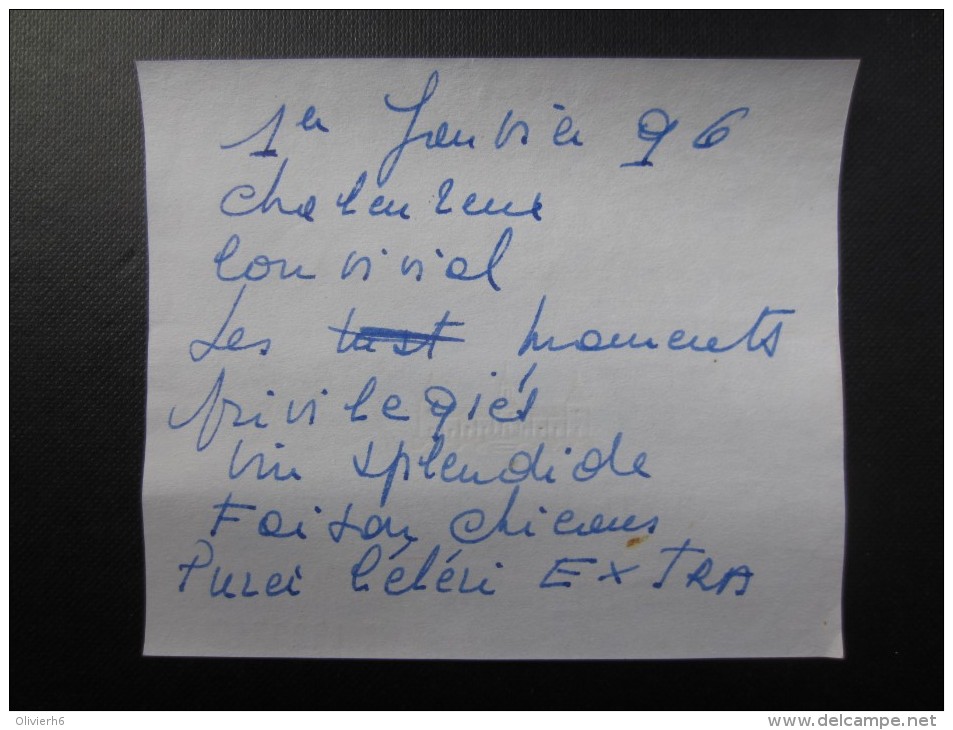 1er Janvier 96
Chaleureux
Convivial
Les moments
privilegiés
Vin splendide
Faisan chicons
Purei Céléri EXTRA
Olivierh6
www.delcampe.net